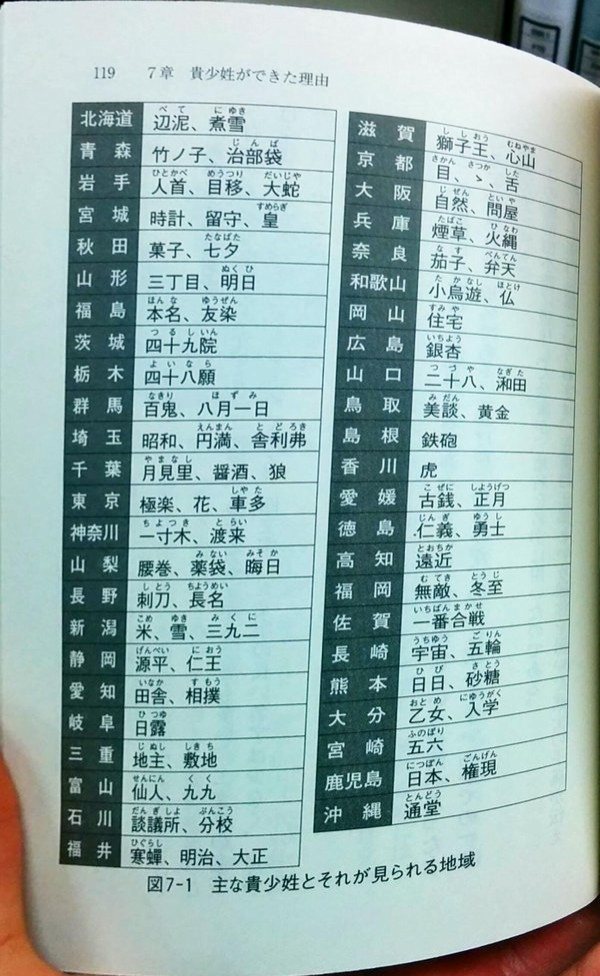 119　7章　貴少姓ができた理由
北海道　辺泥、煮雪
青森　竹ノ子、治部袋
岩手　人首、目移、大蛇
宮城　時計、留守、皇
秋田　菓子、七夕
山形　三丁目、明日
福島　本名、友染
茨城　四十九院
栃木　四十八願
群馬　百鬼、八月一日
埼玉　昭和、円満、舎利弗
千葉　月見里、醤酒、狼
東京　極楽、花、車多
神奈川　一寸木、渡来
山梨　腰巻、薬袋、晦日
長野　刺刀、長名
新潟　米、雪、三九二
静岡　源平、仁王
愛知　田舎、相撲
岐阜　日露
三重　地主、敷地
富山　仙人、九九
石川　談議所、分校
福井　寒蟬、明治、大正
滋賀　獅子王、心山
京都　目、ゝ、舌
大阪　自然、問屋
兵庫　煙草、火縄
奈良　茄子、弁天
和歌山　小鳥遊、仏
岡山　住宅
広島　銀杏
山口　二十八、和田
鳥取　美談、黄金
島根　鉄砲
香川　虎
愛媛　古銭、正月
徳島　仁義、勇士
高知　遠近
福岡　無敵、冬至
佐賀　一番合戦
長崎　宇宙、五輪
熊本　日日、砂糖
大分　乙女、入学
宮崎　五六
鹿児島　日本、権現
沖縄　通堂
図7-1　主な貴少姓とそれが見られる地域